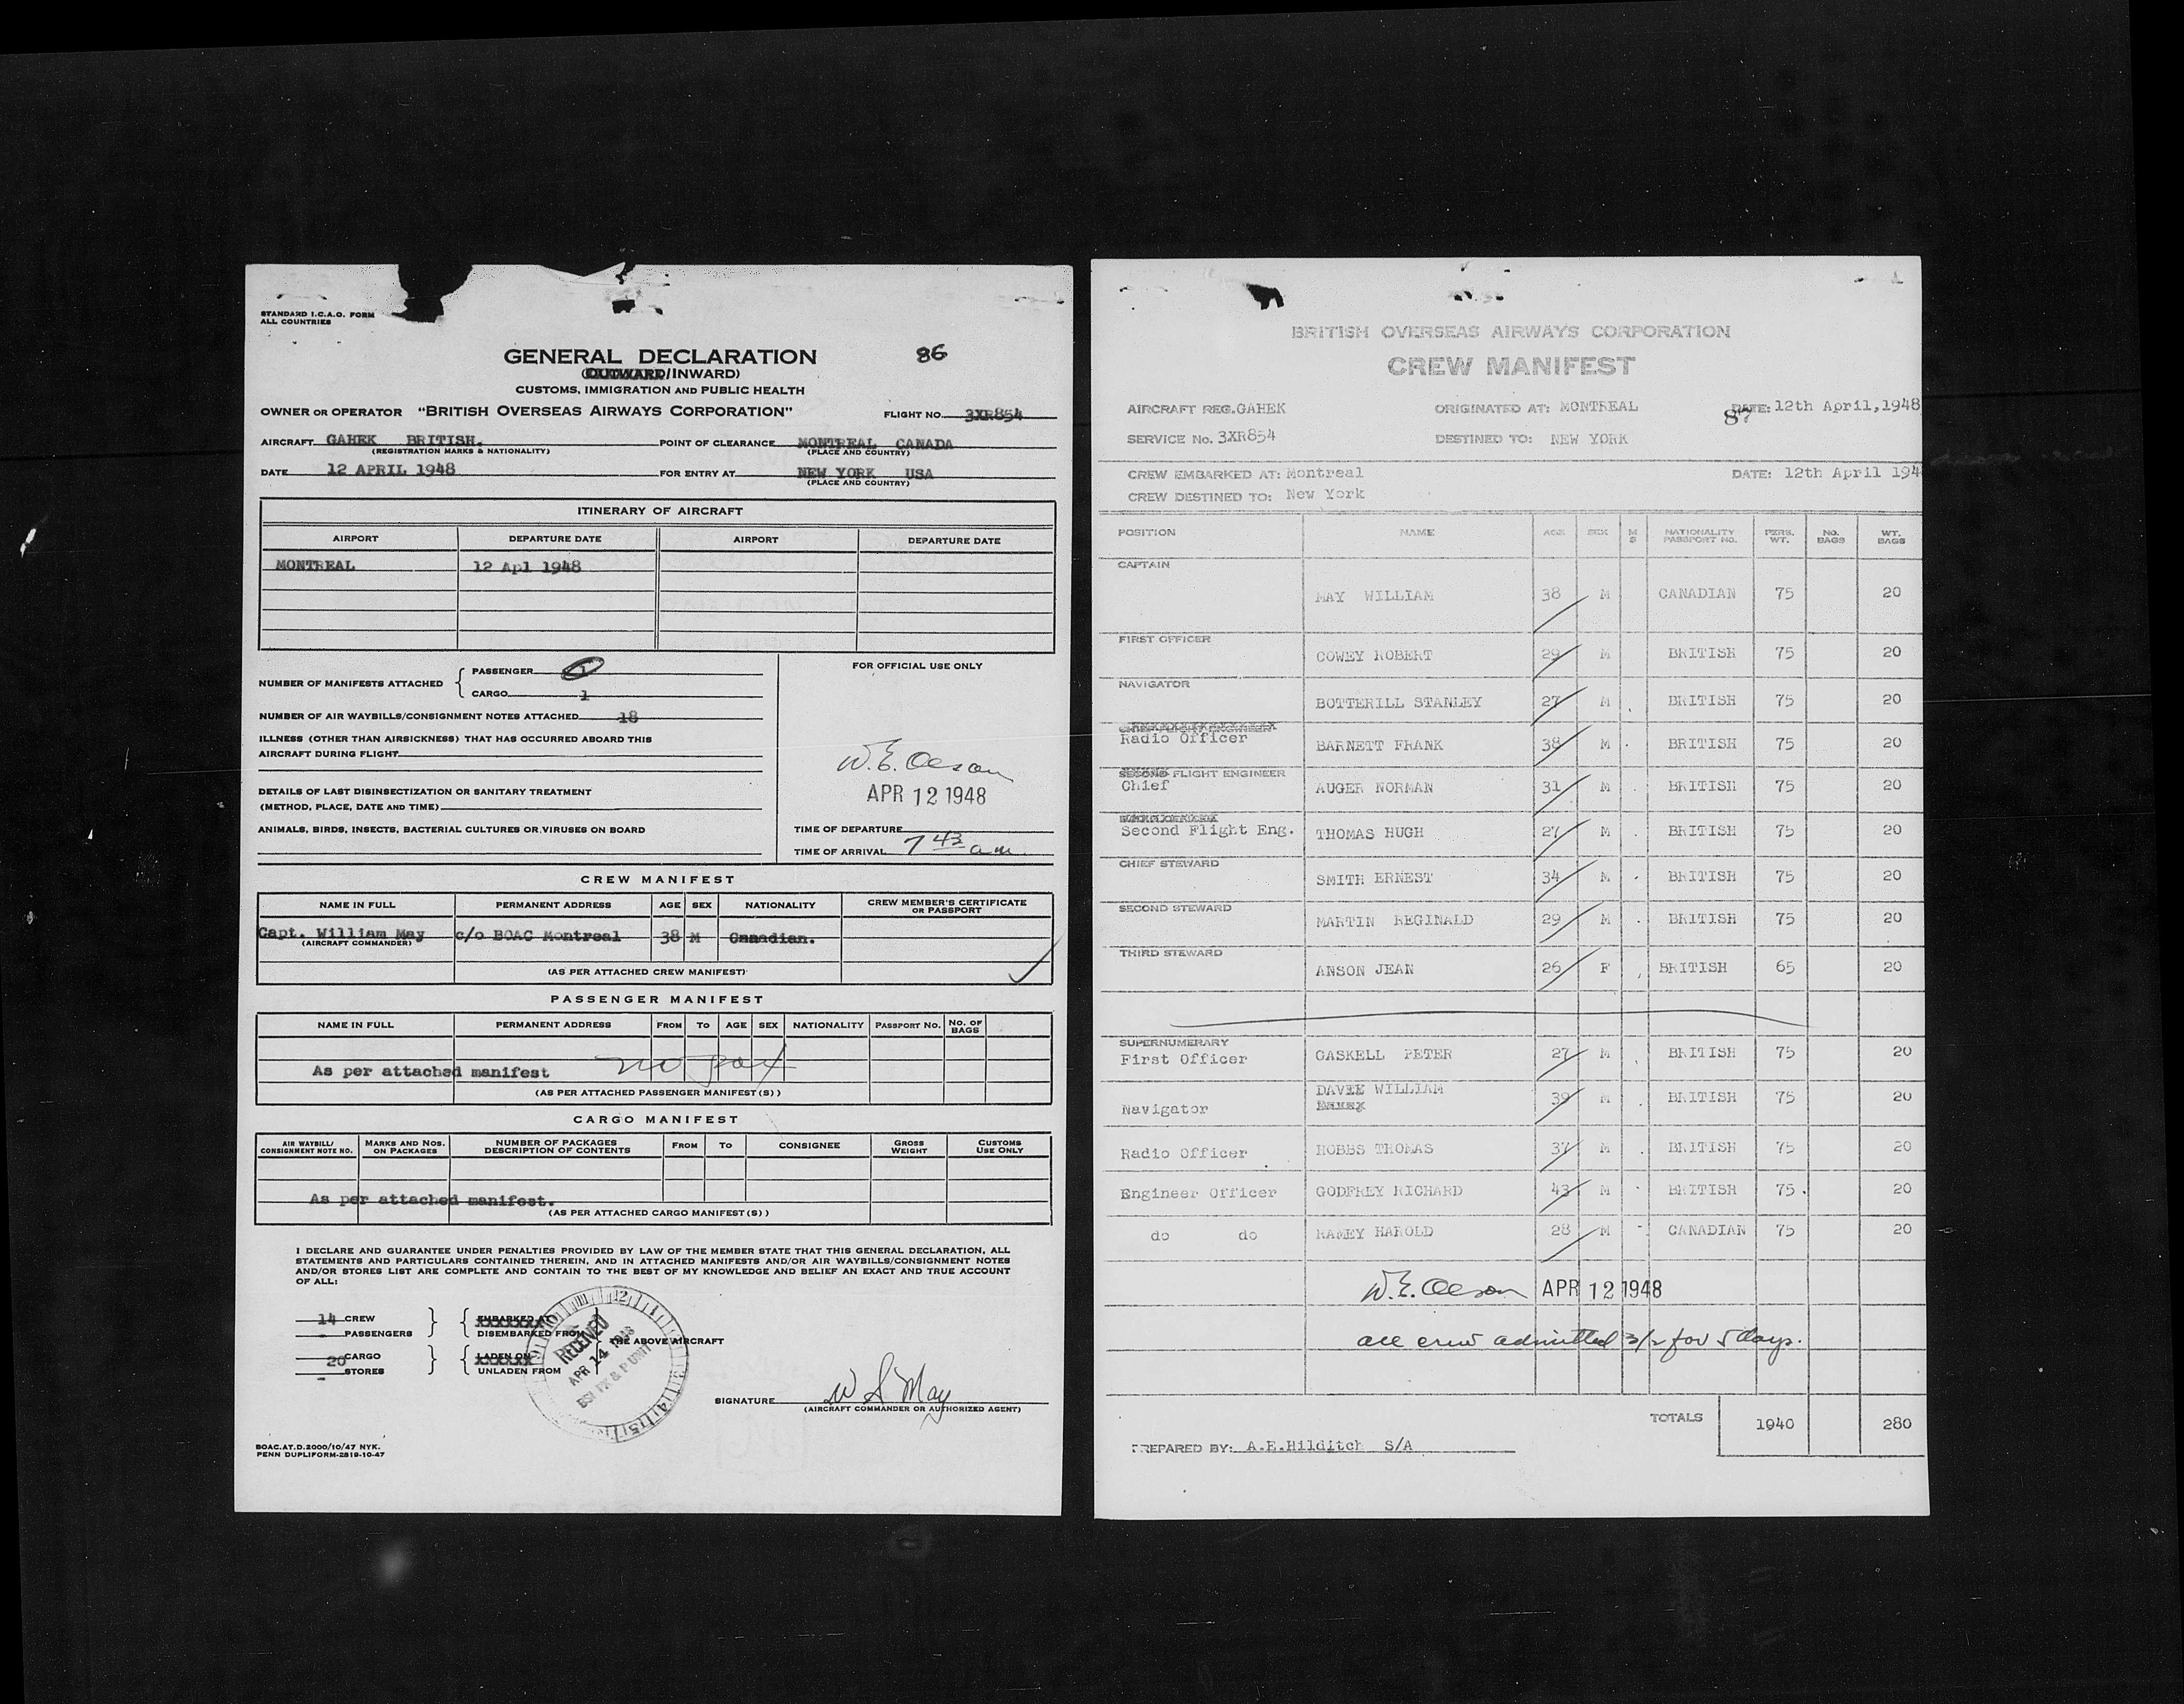 STANDARD I.C.A.O. FORM
ALL COUNTRIES
GENERAL DECLARATION
86
(OUTWARD/INWARD)
CUSTOMS, IMMIGRATION AND PUBLIC HEALTH
OWNER OR OPERATOR "BRITISH OVERSEAS AIRWAYS CORPORATION" FLIGHT NO. 3XR854
AIRCRAFT GAHEK BRITISH. POINT OF CLEARANCE MONTREAL CANADA
(REGISTRATION MARKS & NATIONALITY) (PLACE AND COUNTRY)
DATE 12 APRIL 1948 FOR ENTRY AT NEW YORK USA
(PLACE AND COUNTRY)
ITINERARY OF AIRCRAFT
AIRPORT DEPARTURE DATE AIRPORT DEPARTURE DATE
MONTREAL 12 Apl 1948
NUMBER OF MANIFESTS ATTACHED PASSENGER
CARGO 1
NUMBER OF AIR WAYBILLS/CONSIGNMENT NOTES ATTACHED 18
ILLNESS (OTHER THAN AIRSICKNESS) THAT HAS OCCURRED ABOARD THIS
AIRCRAFT DURING FLIGHT
DETAILS OF LAST DISINSECTIZATION OR SANITARY TREATMENT
(METHOD, PLACE, DATE AND TIME)
ANIMALS, BIRDS, INSECTS, BACTERIAL CULTURES OR VIRUSES ON BOARD
FOR OFFICIAL USE ONLY
W. E. Olson
APR 12 1948
TIME OF DEPARTURE
TIME OF ARRIVAL 7 43 am
CREW MANIFEST
NAME IN FULL PERMANENT ADDRESS AGE SEX NATIONALITY CREW MEMBER'S CERTIFICATE OR PASSPORT
Capt. William May c/o BOAC Montreal 38 M Canadian.
(AIRCRAFT COMMANDER)
(AS PER ATTACHED CREW MANIFEST)
PASSENGER MANIFEST
NAME IN FULL PERMANENT ADDRESS FROM TO AGE SEX NATIONALITY PASSPORT NO. NO. OF BAGS
As per attached manifest no pax
(AS PER ATTACHED PASSENGER MANIFEST(S))
CARGO MANIFEST
AIR WAYBILL/ CONSIGNMENT NOTE NO. MARKS AND NOS. ON PACKAGES NUMBER OF PACKAGES DESCRIPTION OF CONTENTS FROM TO CONSIGNEE GROSS WEIGHT CUSTOMS USE ONLY
As per attached manifest.
(AS PER ATTACHED CARGO MANIFEST(S))
I DECLARE AND GUARANTEE UNDER PENALTIES PROVIDED BY LAW OF THE MEMBER STATE THAT THIS GENERAL DECLARATION, ALL
STATEMENTS AND PARTICULARS CONTAINED THEREIN, AND IN ATTACHED MANIFESTS AND/OR AIR WAYBILLS/CONSIGNMENT NOTES
AND/OR STORES LIST ARE COMPLETE AND CONTAIN TO THE BEST OF MY KNOWLEDGE AND BELIEF AN EXACT AND TRUE ACCOUNT
OF ALL:
14 CREW EMBARKED AT
- PASSENGERS DISEMBARKED FROM THE ABOVE AIRCRAFT
20 CARGO LADEN ON
- STORES UNLADEN FROM
RECEIVED
APR 14 1948
SIGNATURE W S May
(AIRCRAFT COMMANDER OR AUTHORIZED AGENT)
BOAC.AT.D.2000/10/47 NYK.
PENN DUPLIFORM-2819-10-47
BRITISH OVERSEAS AIRWAYS CORPORATION
CREW MANIFEST
AIRCRAFT REG. GAHEK ORIGINATED AT: MONTREAL DATE: 12th April, 1948
87
SERVICE No. 3XR854 DESTINED TO: NEW YORK
CREW EMBARKED AT: Montreal DATE: 12th April 194
CREW DESTINED TO: New York
POSITION NAME AGE SEX M S NATIONALITY PASSPORT NO. PERS. WT. NO. BAGS WT. BAGS
CAPTAIN
MAY WILLIAM 38 M CANADIAN 75 20
FIRST OFFICER
COWEY ROBERT 29 M BRITISH 75 20
NAVIGATOR
BOTTERILL STANLEY 27 M BRITISH 75 20
Radio Officer BARNETT FRANK 38 M BRITISH 75 20
SECOND FLIGHT ENGINEER
Chief AUGER NORMAN 31 M BRITISH 75 20
Second Flight Eng. THOMAS HUGH 27 M BRITISH 75 20
CHIEF STEWARD
SMITH ERNEST 34 M BRITISH 75 20
SECOND STEWARD
MARTIN REGINALD 29 M BRITISH 75 20
THIRD STEWARD
ANSON JEAN 26 F BRITISH 65 20
SUPERNUMERARY
First Officer GASKELL PETER 27 M BRITISH 75 20
Navigator DAVEE WILLIAM 39 M BRITISH 75 20
Radio Officer HOBBS THOMAS 37 M BRITISH 75 20
Engineer Officer GODFREY RICHARD 43 M BRITISH 75 20
do do RAMEY HAROLD 28 M CANADIAN 75 20
W. E. Olson APR 12 1948
all crew admitted 3/2 for 5 days.
TOTALS 1940 280
PREPARED BY: A.E.Hilditch S/A